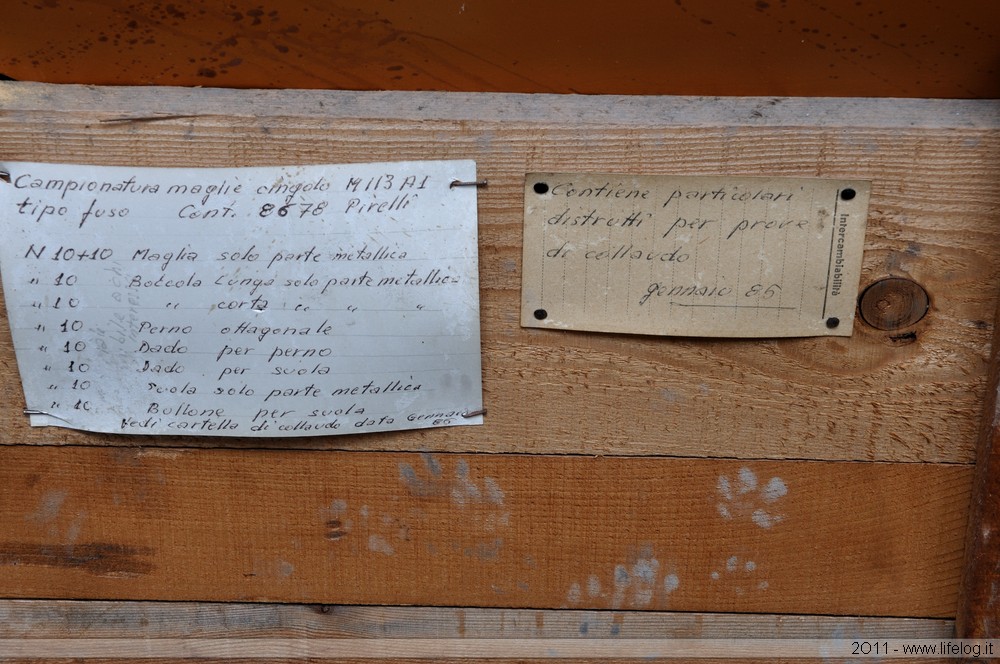 Campionatura maglie cingolo M113A1
tipo fuso Cont. 8678 Pirelli
N 10+10 Maglia solo parte metallica
" 10 Boccola lunga solo parte metallica
" 10 " corta " " "
" 10 Perno ottagonale
" 10 Dado per perno
" 10 Dado per suola
" 10 Suola solo parte metallica
" 10 Bullone per suola
Vedi cartella di collaudo data Gennaio
85
Contiene particolari
distrutti per prove
di collaudo
gennaio 85
Intercambiabilità
2011 - www.lifelog.it